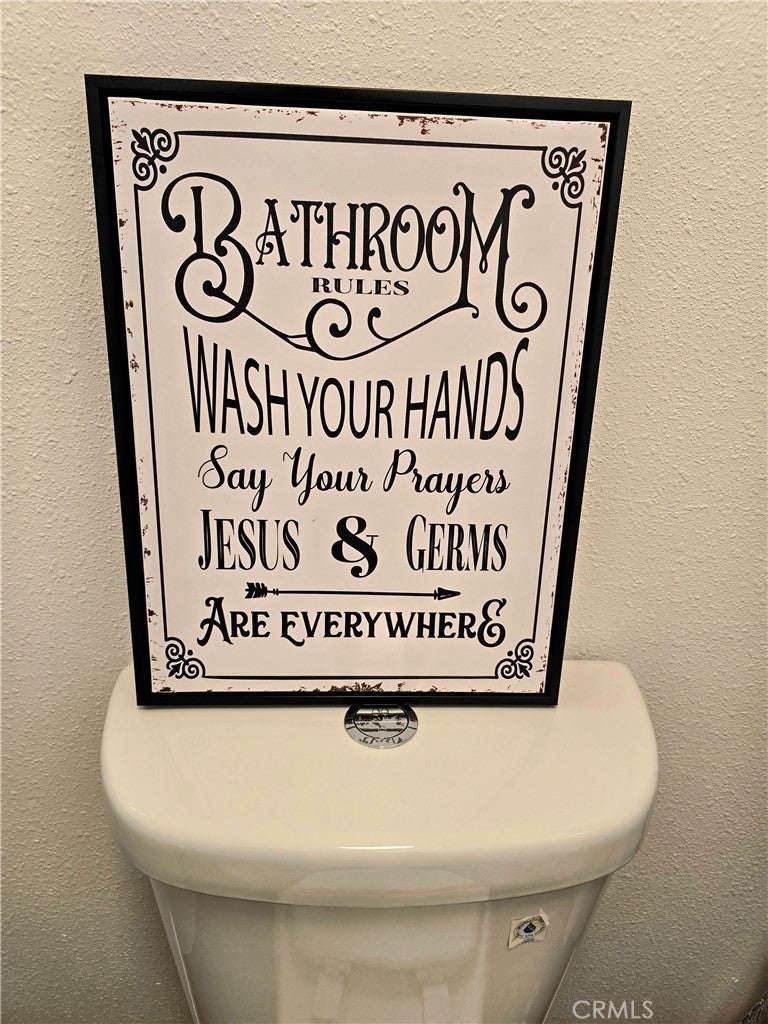 BATHROOM
RULES
WASH YOUR HANDS
Say Your Prayers
JESUS & GERMS
ARE EVERYWHERE
CRMLS